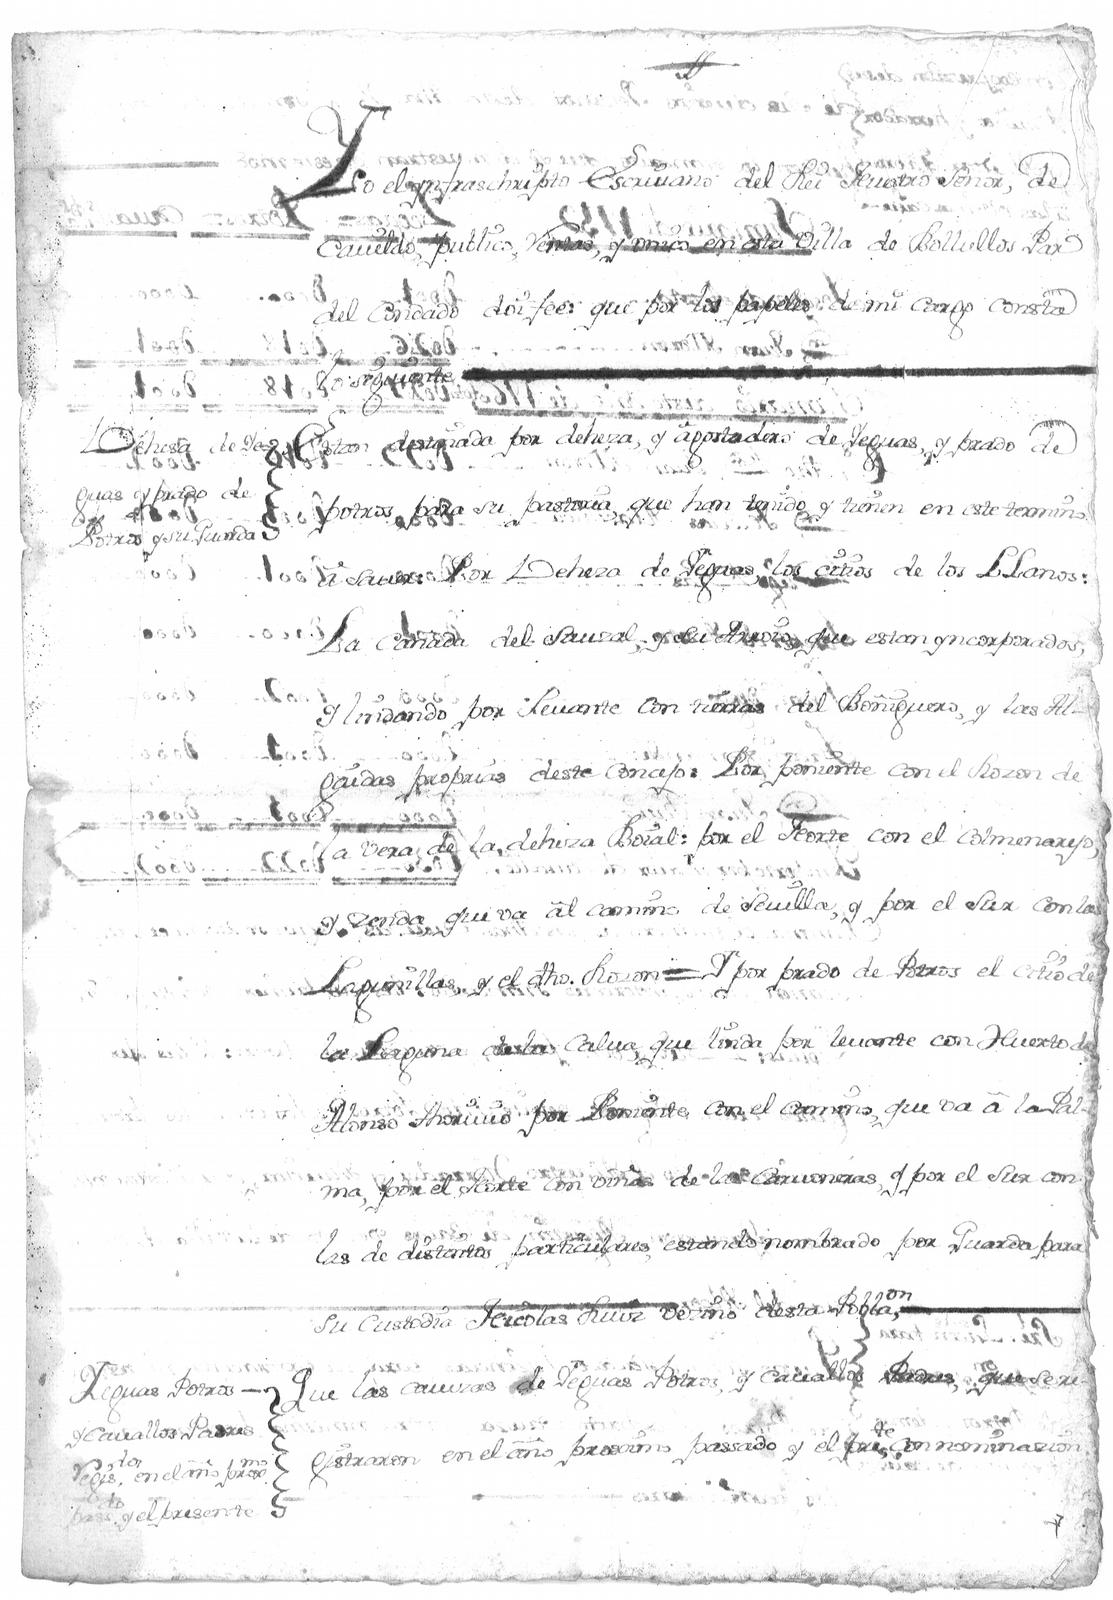 Yo el ynfraschripto Escriuano del Rei Nuestro Señor, de
Cauildo, publico, Rentas, y vnico en esta Villa de Bollullos Par
del Condado doi fee: que por los papeles de mi cargo consta
lo siguiente
Dehesa de Ye-
guas y prado de
Potros y su Guarda
Estan destinada por deheza, y apostadero de Yeguas, y prado de
potros para su pastoria, que han tenido y tienen en este termino
á Sauer: Por Deheza de Yeguas, los citios de los LLanos:
La Cañada del Sauzal, y su Arroio, que estan yncorporados,
y lindando por Leuante con tierras del Boñiguero, y las Al-
gaidas proprias deste Concejo: Por poniente con el Rozon de
la Vera de la deheza Boial: por el Norte con el Colmenarejo,
y zenda que va ál camino de Seuilla, y por el Sur con las
Lagunillas, y el dho. Rozon = Y por prado de Potros el citio de
la Laguna de la Calua, que linda por leuante con Huerto de
Alonso por Poniente con el camino, que va á la Pal-
ma, por el Norte con viñas de las Caruoneras, y por el Sur con
las de distintos particulares, estando nombrado por Guarda para
su Custodia Nicolas Ruiz vezino desta Poblaon
Yeguas Potros
y Cauallos Padres
Regisdos en el año proxmo
passdo y el presente
Que las cauezas de Yeguas Potros, y Cauallos Padres, que se re-
gistraron en el año proximo passado y el preste con nominazion